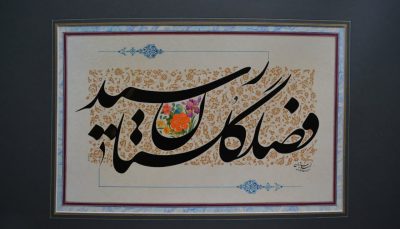 فصل گلستان رسید